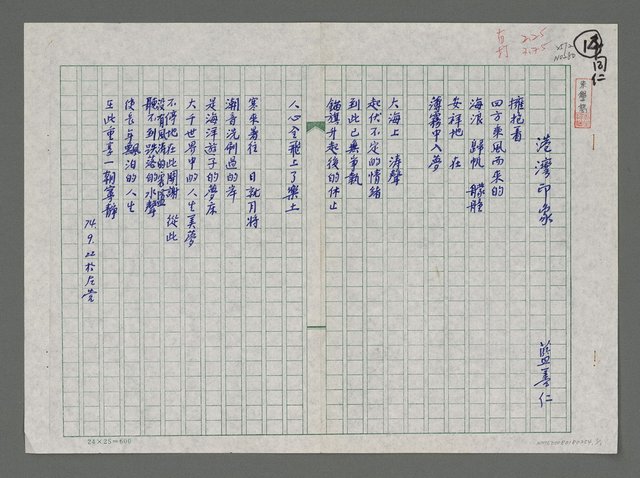 港灣印象
藍善仁
擁抱着
四方乘風而來的
海浪 歸帆 艨艟
安祥地 在
薄霧中入夢
大海上 濤聲
起伏不定的情緒
到此已無爭執
錨旗升起後的休止
人心全飛上了樂土
寒來暑往 日就月將
潮音洗刷過的岸
是海洋遊子的夢床
大千世界中的人生美夢
不停地在此開謝 從此
沒有風浪的掩蓋
聽不到跌落的水聲
使長年飄泊的人生
至此重享一朝寧靜
74.9.22於左營
24×25=600
同仁